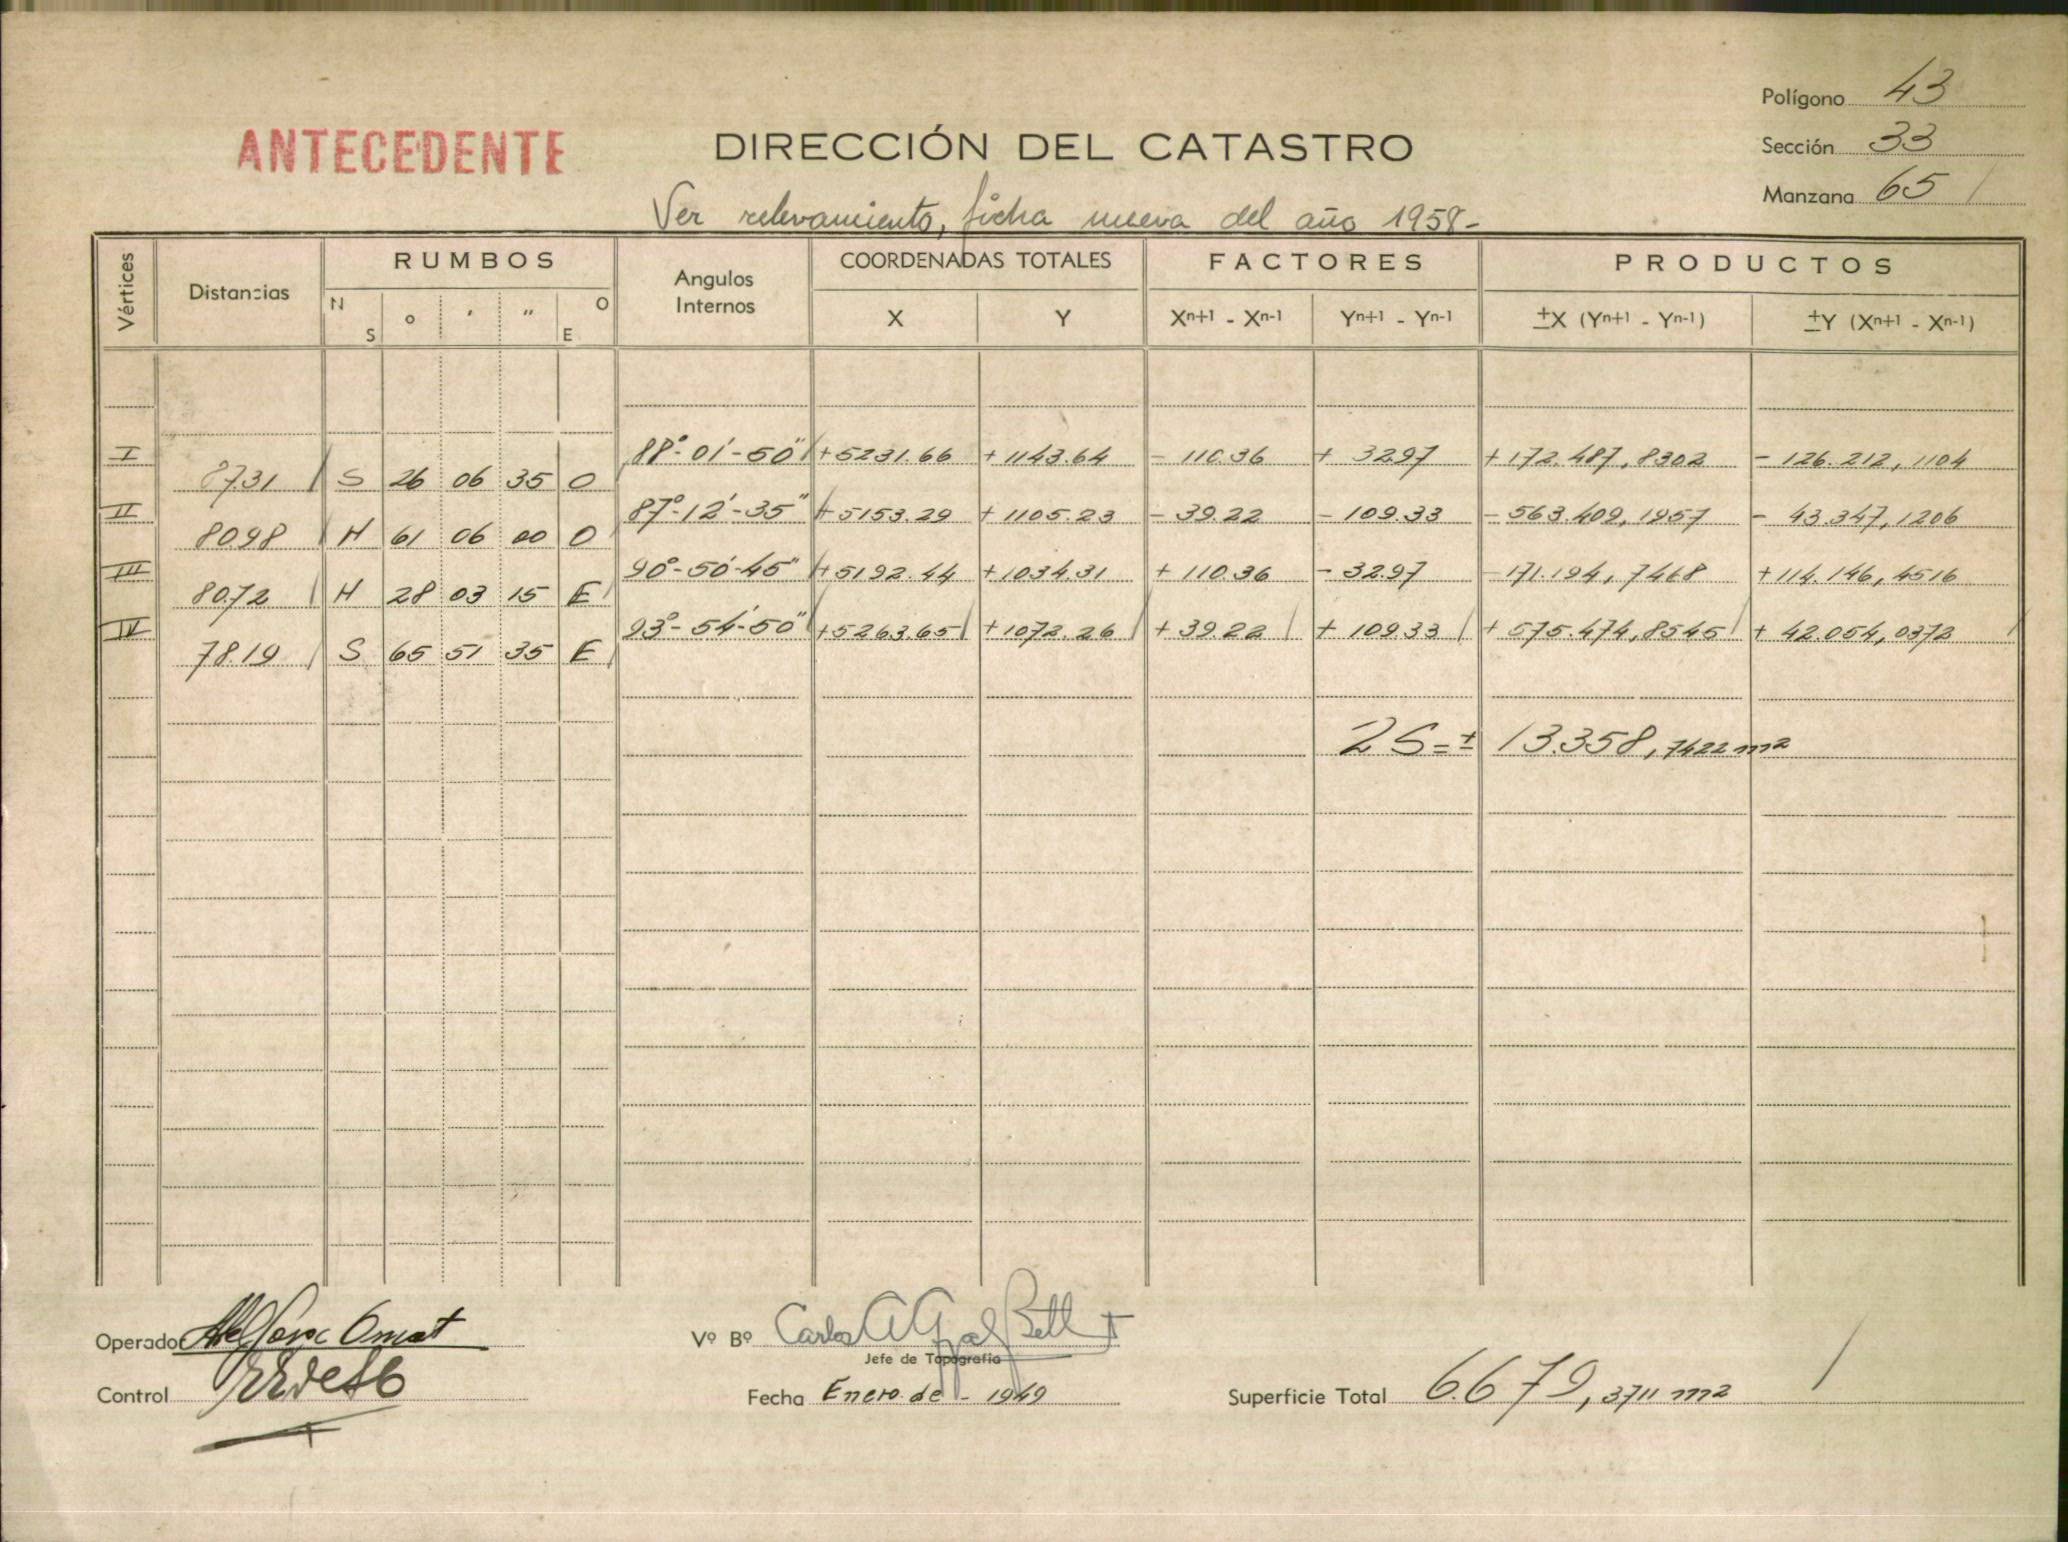 Polígono 43
ANTECEDENTE DIRECCIÓN DEL CATASTRO Sección 33
Manzana 65
Ver relevamiento, ficha nueva del año 1958-
Vértices Distancias RUMBOS Angulos Internos COORDENADAS TOTALES FACTORES PRODUCTOS
N S ° ′ ″ O E X Y Xn+1 - Xn-1 Yn+1 - Yn-1 ±X (Yn+1 - Yn-1) ±Y (Xn+1 - Xn-1)
I 88°-01'-50" +5231.66 +1143.64 - 110.36 + 32.97 +172.487,8302 - 126.212,1104
87.31 S 26 06 35 O
II 87°-12'-35" +5153.29 +1105.23 - 39.22 - 109.33 - 563.409,1957 - 43.347,1206
80.98 N 61 06 00 O
III 90°-50'-45" +5192.44 +1034.31 + 110.36 - 32.97 - 171.194,7468 +114.146,4516
80.72 N 28 03 15 E
IV 93°-54'-50" +5263.65 +1072.26 + 39.22 + 109.33 + 575.474,8545 + 42.054,0372
78.19 S 65 51 35 E
2S=± 13.358,7422 m2
Operador
Vº Bº Carlos A
Jefe de Topografía
Control
Fecha Enero de - 1949
Superficie Total 6.679,3711 m2